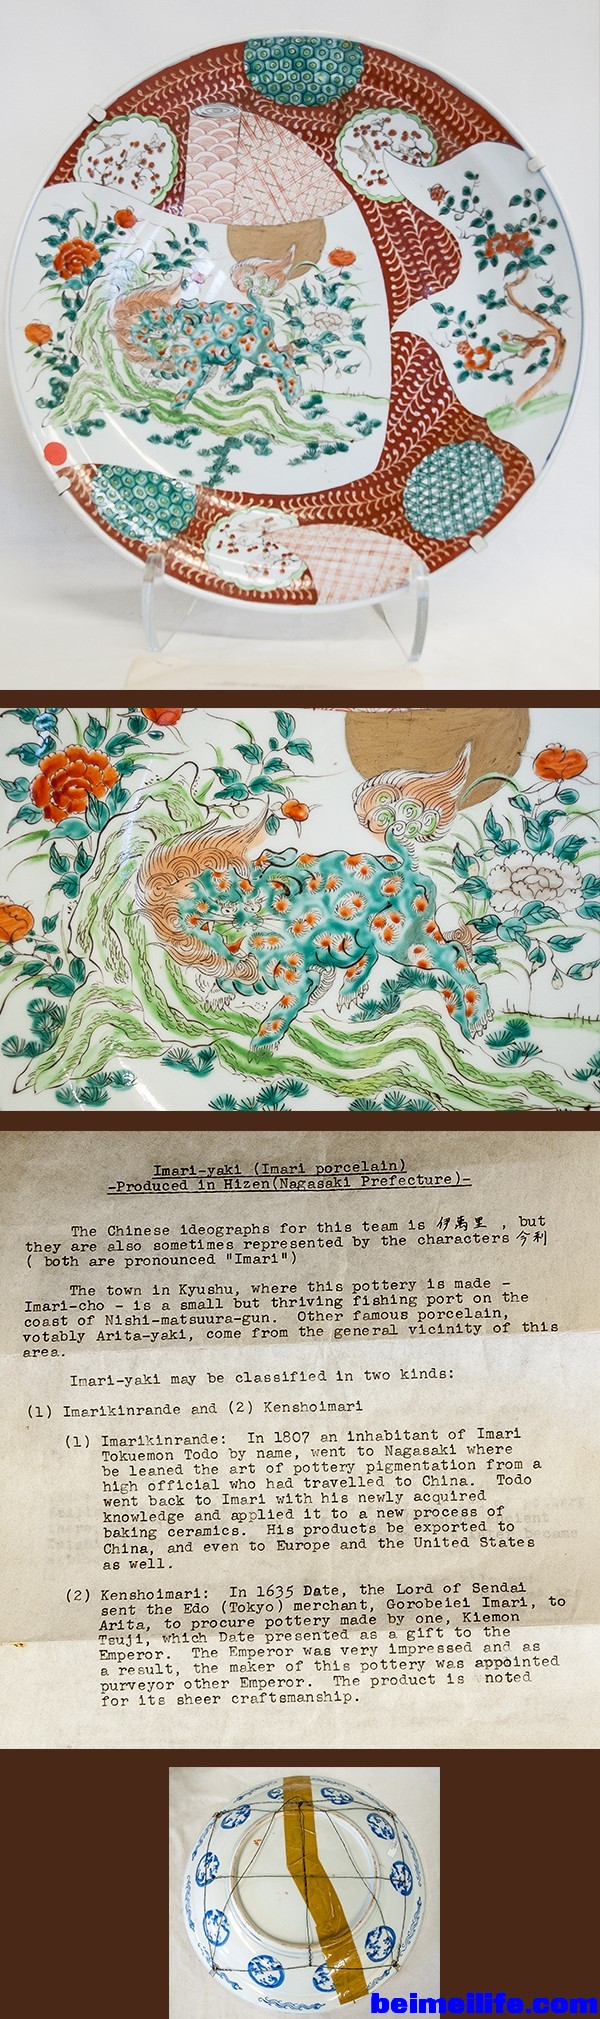 Imari-yaki (Imari porcelain)
-Produced in Hizen(Nagasaki Prefecture)-
The Chinese ideographs for this team is 伊萬里 , but
they are also sometimes represented by the characters 今利
( both are pronounced "Imari")
The town in Kyushu, where this pottery is made -
Imari-cho - is a small but thriving fishing port on the
coast of Nishi-matsuura-gun. Other famous porcelain,
votably Arita-yaki, come from the general vicinity of this
area.
Imari-yaki may be classified in two kinds:
(1) Imarikinrande and (2) Kenshoimari
(1) Imarikinrande: In 1807 an inhabitant of Imari
Tokuemon Todo by name, went to Nagasaki where
be leaned the art of pottery pigmentation from a
high official who had travelled to China. Todo
went back to Imari with his newly acquired
knowledge and applied it to a new process of
baking ceramics. His products be exported to
China, and even to Europe and the United States
as well.
(2) Kenshoimari: In 1635 Date, the Lord of Sendai
sent the Edo (Tokyo) merchant, Gorobeiei Imari, to
Arita, to procure pottery made by one, Kiemon
Tsuji, which Date presented as a gift to the
Emperor. The Emperor was very impressed and as
a result, the maker of this pottery was appointed
purveyor other Emperor. The product is noted
for its sheer craftsmanship.
beimeilife.com